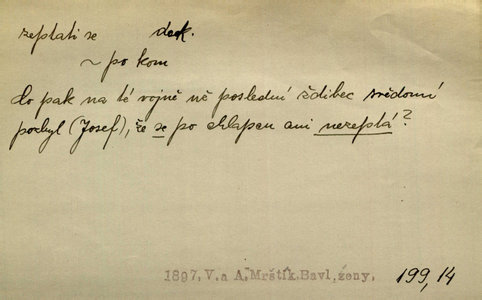 zeptati se dok.
~ po kom
co pak na té vojně ně poslední ždibec svědomí
pozbyl (Josef), že se po chlapcu ani nezeptá?
1897. V. a A. Mrštík. Bavl. ženy. 199, 14